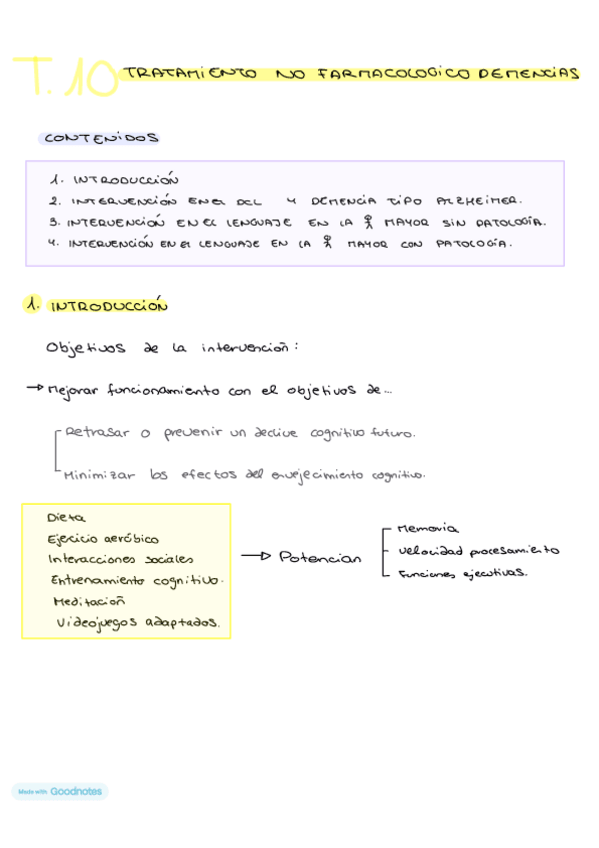 T.10 TRATAMIENTO NO FARMACOLOGICO DEMENCIAS
CONTENIDOS
1. INTRODUCCIÓN
2. INTERVENCIÓN EN EL DCL Y DEMENCIA TIPO ALZHEIMER.
3. INTERVENCIÓN EN EL LENGUAJE EN LA MAYOR SIN PATOLOGÍA.
4. INTERVENCIÓN EN El LENGUAJE EN LA MAYOR CON PATOLOGÍA.
1. INTRODUCCIÓN
Objetivos de la intervención:
→ Mejorar funcionamiento con el objetivos de...
Retrasar o prevenir un declive cognitivo futuro.
Minimizar los efectos del envejecimiento cognitivo.
Dieta
Ejercicio aeróbico
Interacciones sociales
Entrenamiento cognitivo.
Meditación
Videojuegos adaptados.
→ Potencian
Memoria
Velocidad procesamiento
Funciones ejecutivas.
Made with Goodnotes